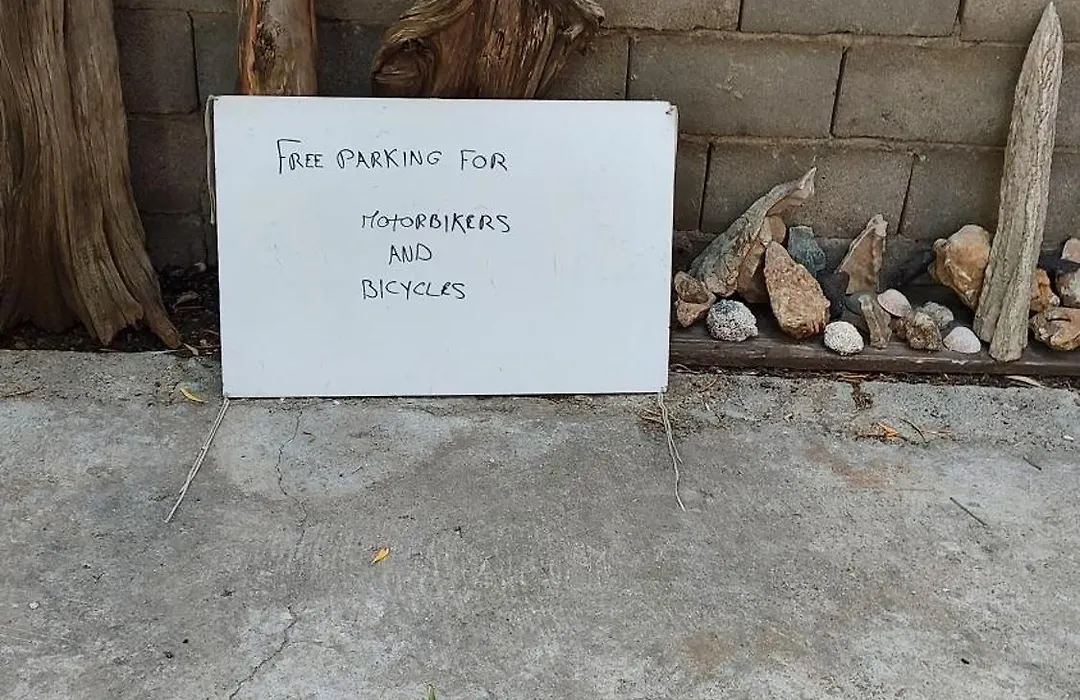 FREE PARKING FOR
MOTORBIKERS
AND
BICYCLES